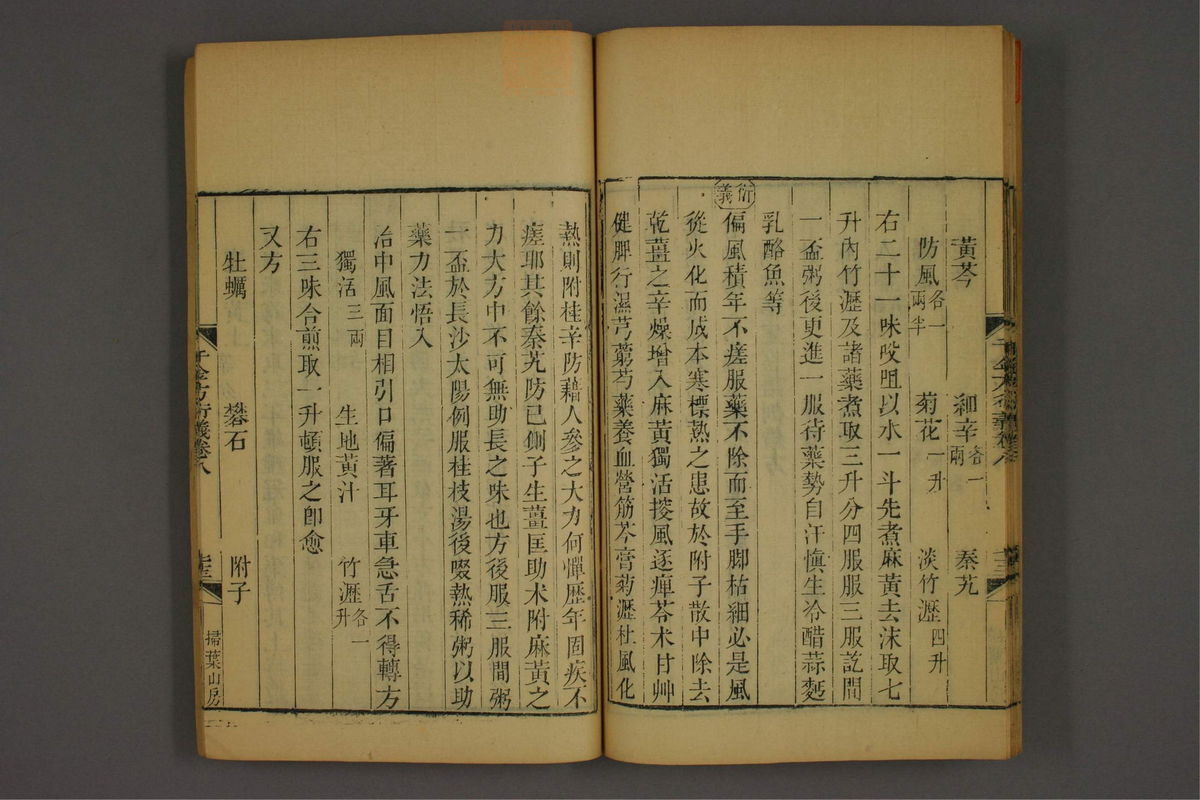 黃芩　細辛各一兩　秦艽
防風各一兩半　菊花一升　淡竹瀝四升
右二十一味㕮咀以水一斗先煮麻黃去沫取七
升內竹瀝及諸藥煮取三升分四服服三服訖間
一盃粥後更進一服待藥勢自汗慎生冷醋蒜麪
乳酪魚等
衍義
偏風積年不瘥服藥不除而至手腳枯細必是風
從火化而成本寒標熱之患故於附子散中除去
乾薑之辛燥增入麻黃獨活搜風逐痺苓朮甘艸
健脾行濕芎藭芍藥養血營筋芩膏菊瀝杜風化
熱則附桂辛防藉人參之大力何憚歷年固疾不
瘥耶其餘秦艽防己側子生薑匡助朮附麻黃之
力大方中不可無助長之味也方後服三服間粥
一盃於長沙太陽例服桂枝湯後啜熱稀粥以助
藥力法悟入
治中風面目相引口偏著耳牙車急舌不得轉方
獨活三兩　生地黃汁　竹瀝各一升
右三味合煎取一升頓服之卽愈
又方
牡蠣　礬石　附子
千金方衍義卷八
掃葉山房